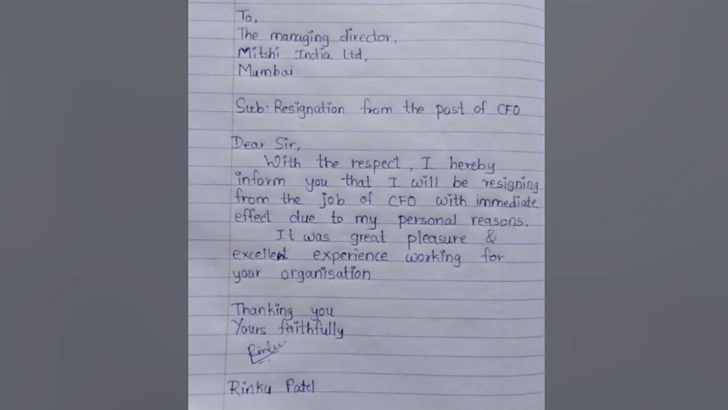 To,
The managing director,
Mitshi India Ltd,
Mumbai
Sub: Resignation from the post of CFO
Dear Sir,
With the respect, I hereby
inform you that I will be resigning
from the job of CFO with immediate
effect due to my personal reasons.
It was great pleasure &
excellent experience working for
your organisation
Thanking you
Yours faithfully
Rinku
Rinku Patel